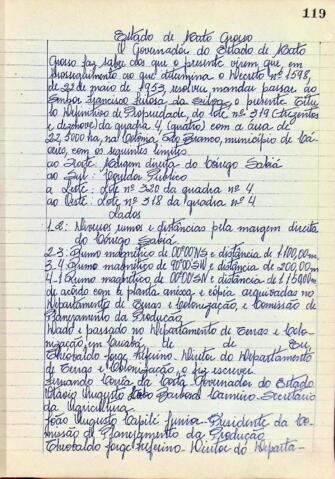 119
Estado de Mato Grosso
O Governador do Estado de Mato
Grosso faz saber aos que o presente virem, que em
prosseguimento ao que determina o Decreto nº 1598,
de 22 de maio de 1953, resolveu mandar passar ao
Senhor Francisco da Silva, o presente Titu
lo Definitivo de Propriedade, do lote nº 319 (trezentos
e dezenove) da quadra 4 (quatro) com a área de
22,5000 ha, na Colônia Rio Branco, município de Cá-
ceres, com os seguintes limites:
ao Norte: Margem direita do Córrego Sabiá
ao Sul: Corredor Público
a Leste: Lote nº 320 da quadra nº 4
ao Oeste: Lote nº 318 da quadra nº 4
Lados
1-2: Diversos rumos e distâncias pela margem direita
do Córrego Sabiá.
2-3: Rumo magnético de 00º00'NS e distância de 1.100,00m.
3-4: Rumo magnético de 90º00'SW e distância de 200,00m
4-1: Rumo magnético de 00º00'SN e distância de
de acordo com a planta anexa e cópia arquivadas no
Departamento de Terras e Colonização, e Comissão de
Planejamento da Produção
Dado e passado no Departamento de Terras e Colo-
nização, em Cuiabá, de de Eu,
Theobaldo Jorge Diretor do Departamento
de Terras e Colonização, o fiz escrever.
Fernando Corrêa da Costa, Governador do Estado
Otávio Augusto Secretário
da Agricultura
João Augusto Capilé Junior - Presidente da Co-
missão de Planejamento da Produção
Theobaldo Jorge Diretor do Departa-